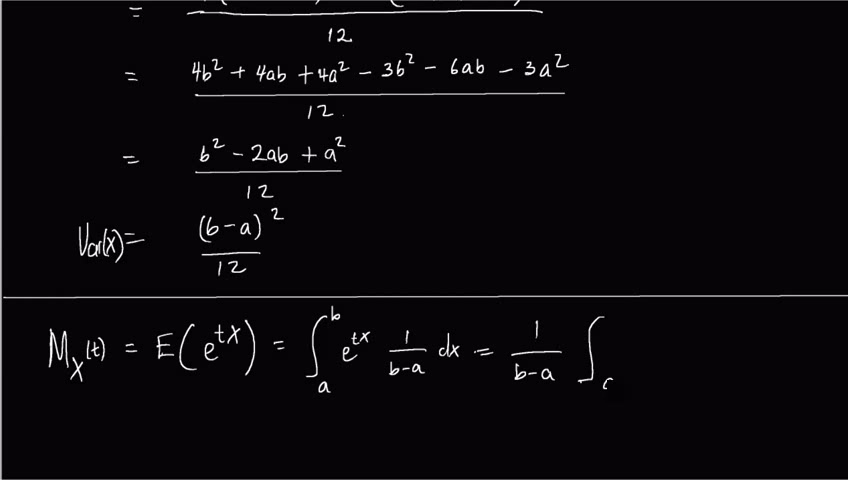 = 12
= 4b² + 4ab + 4a² - 3b² - 6ab - 3a² / 12
= b² - 2ab + a² / 12
Var(x) = (b-a)² / 12
M_X(t) = E(e^{tX}) = ∫_a^b e^{tx} 1/(b-a) dx = 1/(b-a) ∫